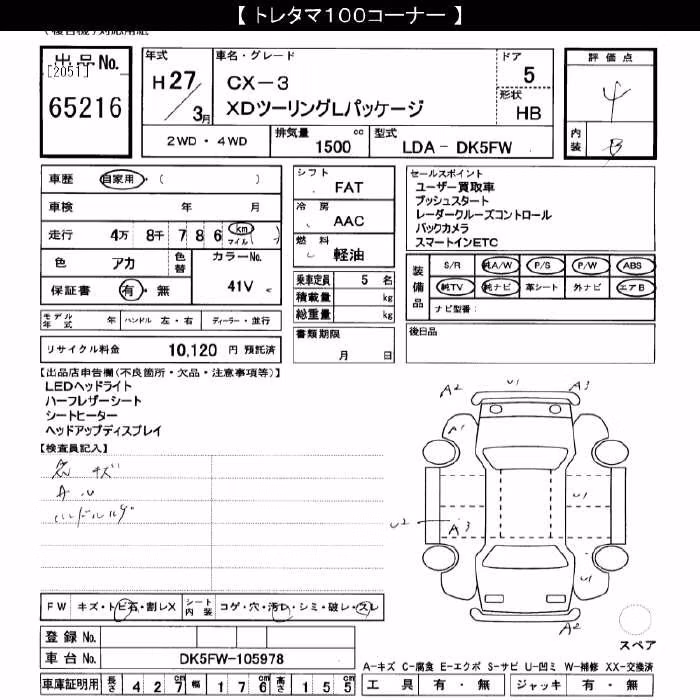 【 トレタマ100コーナー 】
出品No.
[2051]
65216
年式
H27/3月
車名・グレード
CX-3
XDツーリングLパッケージ
ドア
5
形状
HB
評価点
4
内装
B
2WD・4WD
排気量
1500 cc
型式
LDA- DK5FW
車歴 自家用・( )
車検 年 月
走行 4万 8千 7 8 6 km マイル ( )
色 アカ
色替
カラーNo.
41V
保証書 有・無
シフト
FAT
冷房
AAC
燃料
軽油
乗車定員 5 名
積載量 kg
総重量 kg
書類期限
月 日
セールスポイント
ユーザー買取車
プッシュスタート
レーダークルーズコントロール
バックカメラ
スマートインETC
装備品
S/R 純A/W P/S P/W ABS
純TV 純ナビ 革シート 外ナビ エアB
ナビ型番:
後日品
モデル年式 年 ハンドル 左・右 ディーラー・並行
リサイクル料金 10,120 円 預託済
【出品店申告欄(不良箇所・欠品・注意事項等)】
LEDヘッドライト
ハーフレザーシート
シートヒーター
ヘッドアップディスプレイ
【検査員記入】
キズ
A U
A2 U1 A3
A1
U1
U2 A3
U1
A2
スペア
FW キズ・トビ石・割レX
シート内装 コゲ・穴・汚レ・シミ・破レ・スレ
登録No.
車台No. DK5FW-105978
車庫証明用 長さ 4 2 7 cm 幅 1 7 6 cm 高さ 1 5 5 cm
A-キズ C-腐食 E-エクボ S-サビ U-凹ミ W-補修 XX-交換済
工具 有・無 ジャッキ 有・無